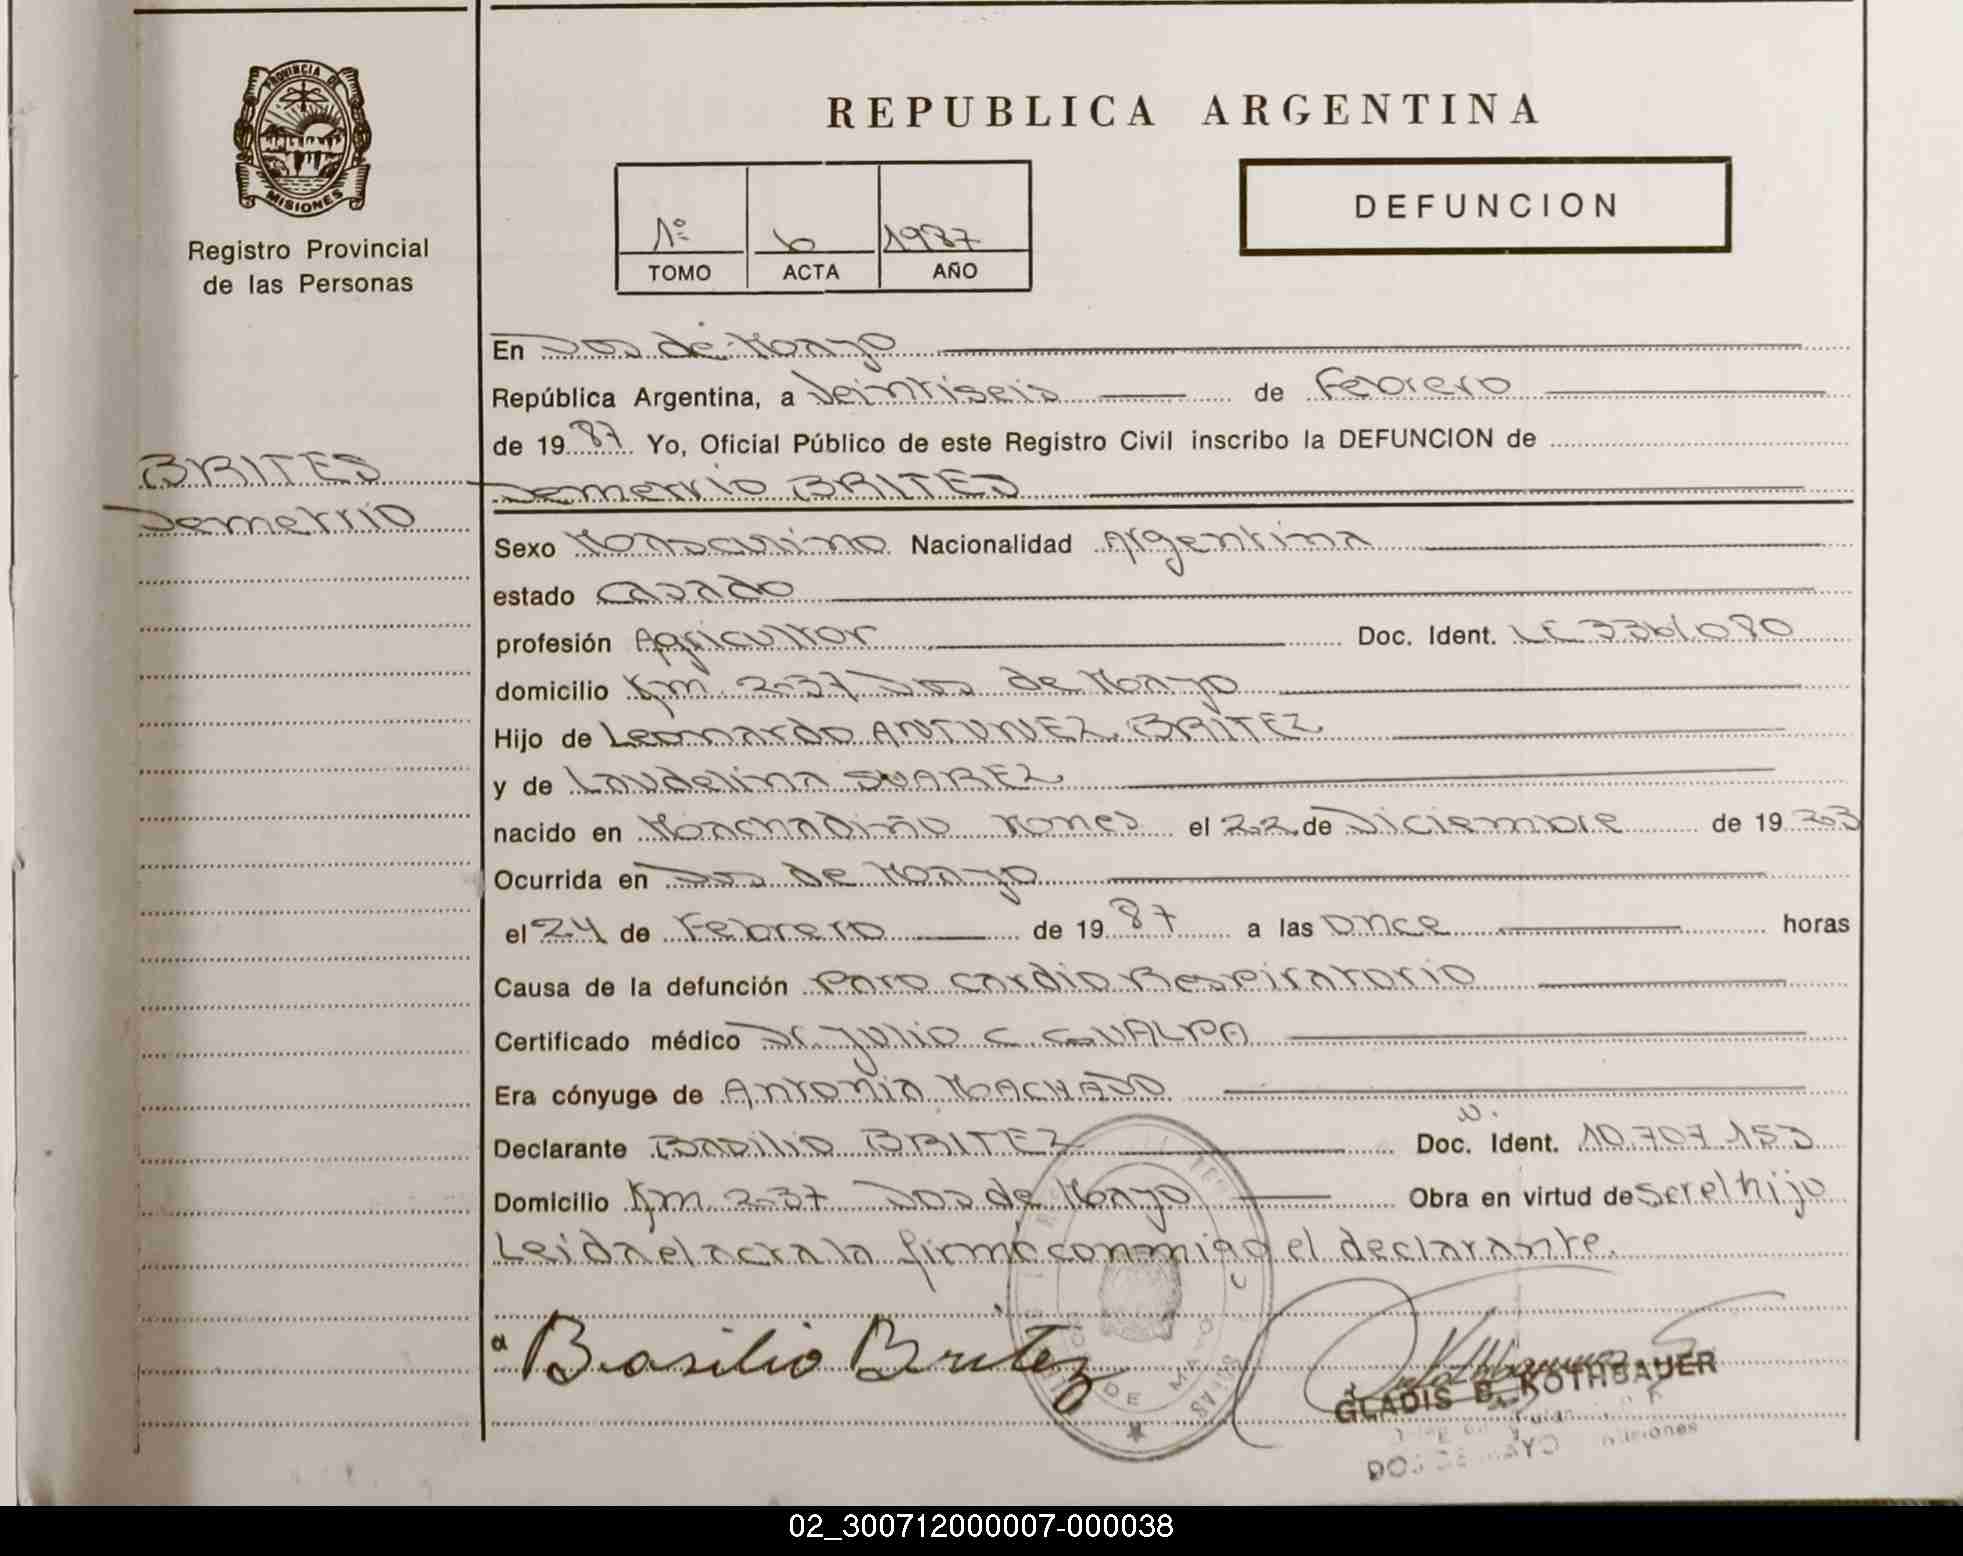 PROVINCIA DE
MISIONES
Registro Provincial
de las Personas
REPUBLICA ARGENTINA
1º 6 1987
TOMO ACTA AÑO
DEFUNCION
En Dos de Mayo
República Argentina, a Veintiseis de Febrero
de 19 87 Yo, Oficial Público de este Registro Civil inscribo la DEFUNCION de
BRITES
Demetrio
Demetrio BRITES
Sexo Masculino Nacionalidad Argentina
estado Casado
profesión Agricultor Doc. Ident.
domicilio Km. 237 Dos de Mayo
Hijo de Leonardo ANTUNEZ BRITEZ
y de Laudelina SUAREZ
nacido en el 22 de Diciembre de 19 23
Ocurrida en Dos de Mayo
el 24 de Febrero de 19 87 a las Once horas
Causa de la defunción Paro Cardio Respiratorio
Certificado médico Dr. Julio C. GUALPA
Era cónyuge de Antonia MACHADO
Declarante Basilio BRITEZ Doc. Ident. 10.707.153
Domicilio Km. 237 Dos de Mayo Obra en virtud de Ser el hijo
Leida el acta la firmó conmigo el declarante.
Basilio Britez
GLADIS B. ROTHBAUER
DOS DE MAYO Misiones
02_300712000007-000038